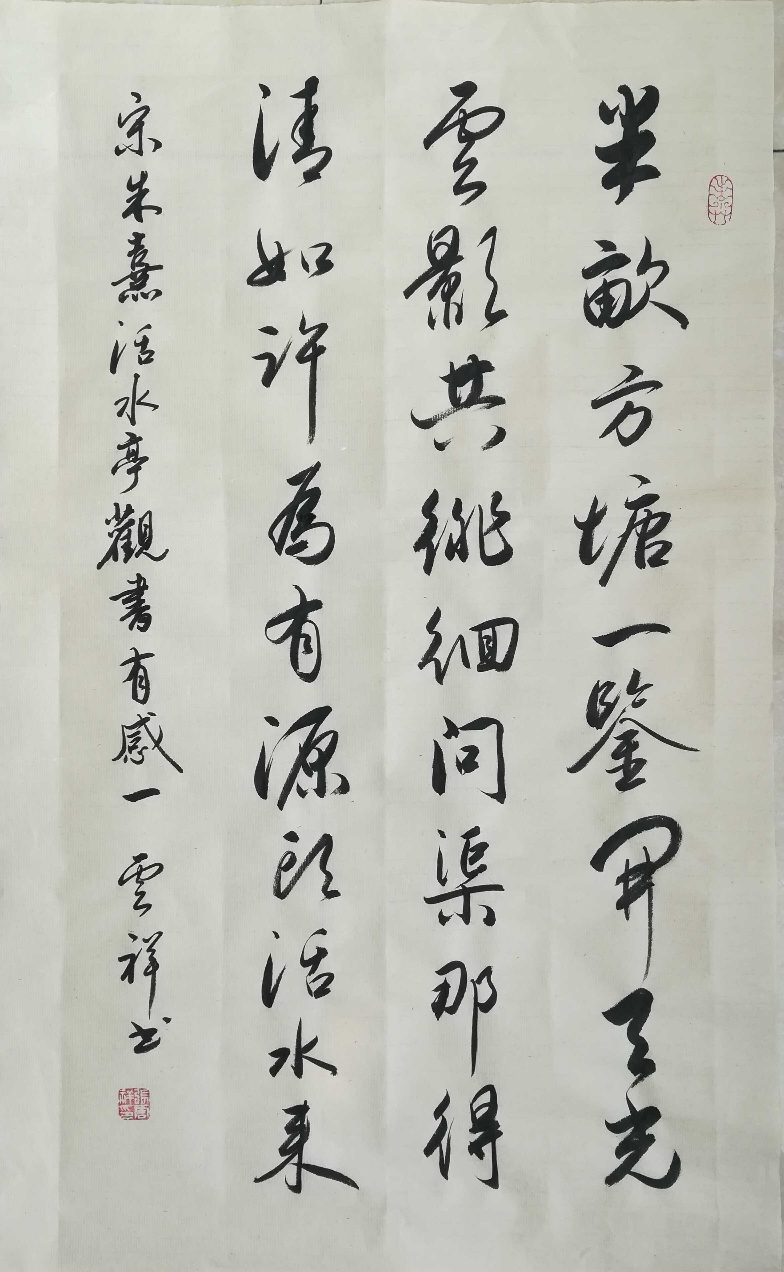 半畝方塘一鑒開天光
雲影共徘徊問渠那得
清如許為有源頭活水來
宋朱熹活水亭觀書有感一 雲祥书